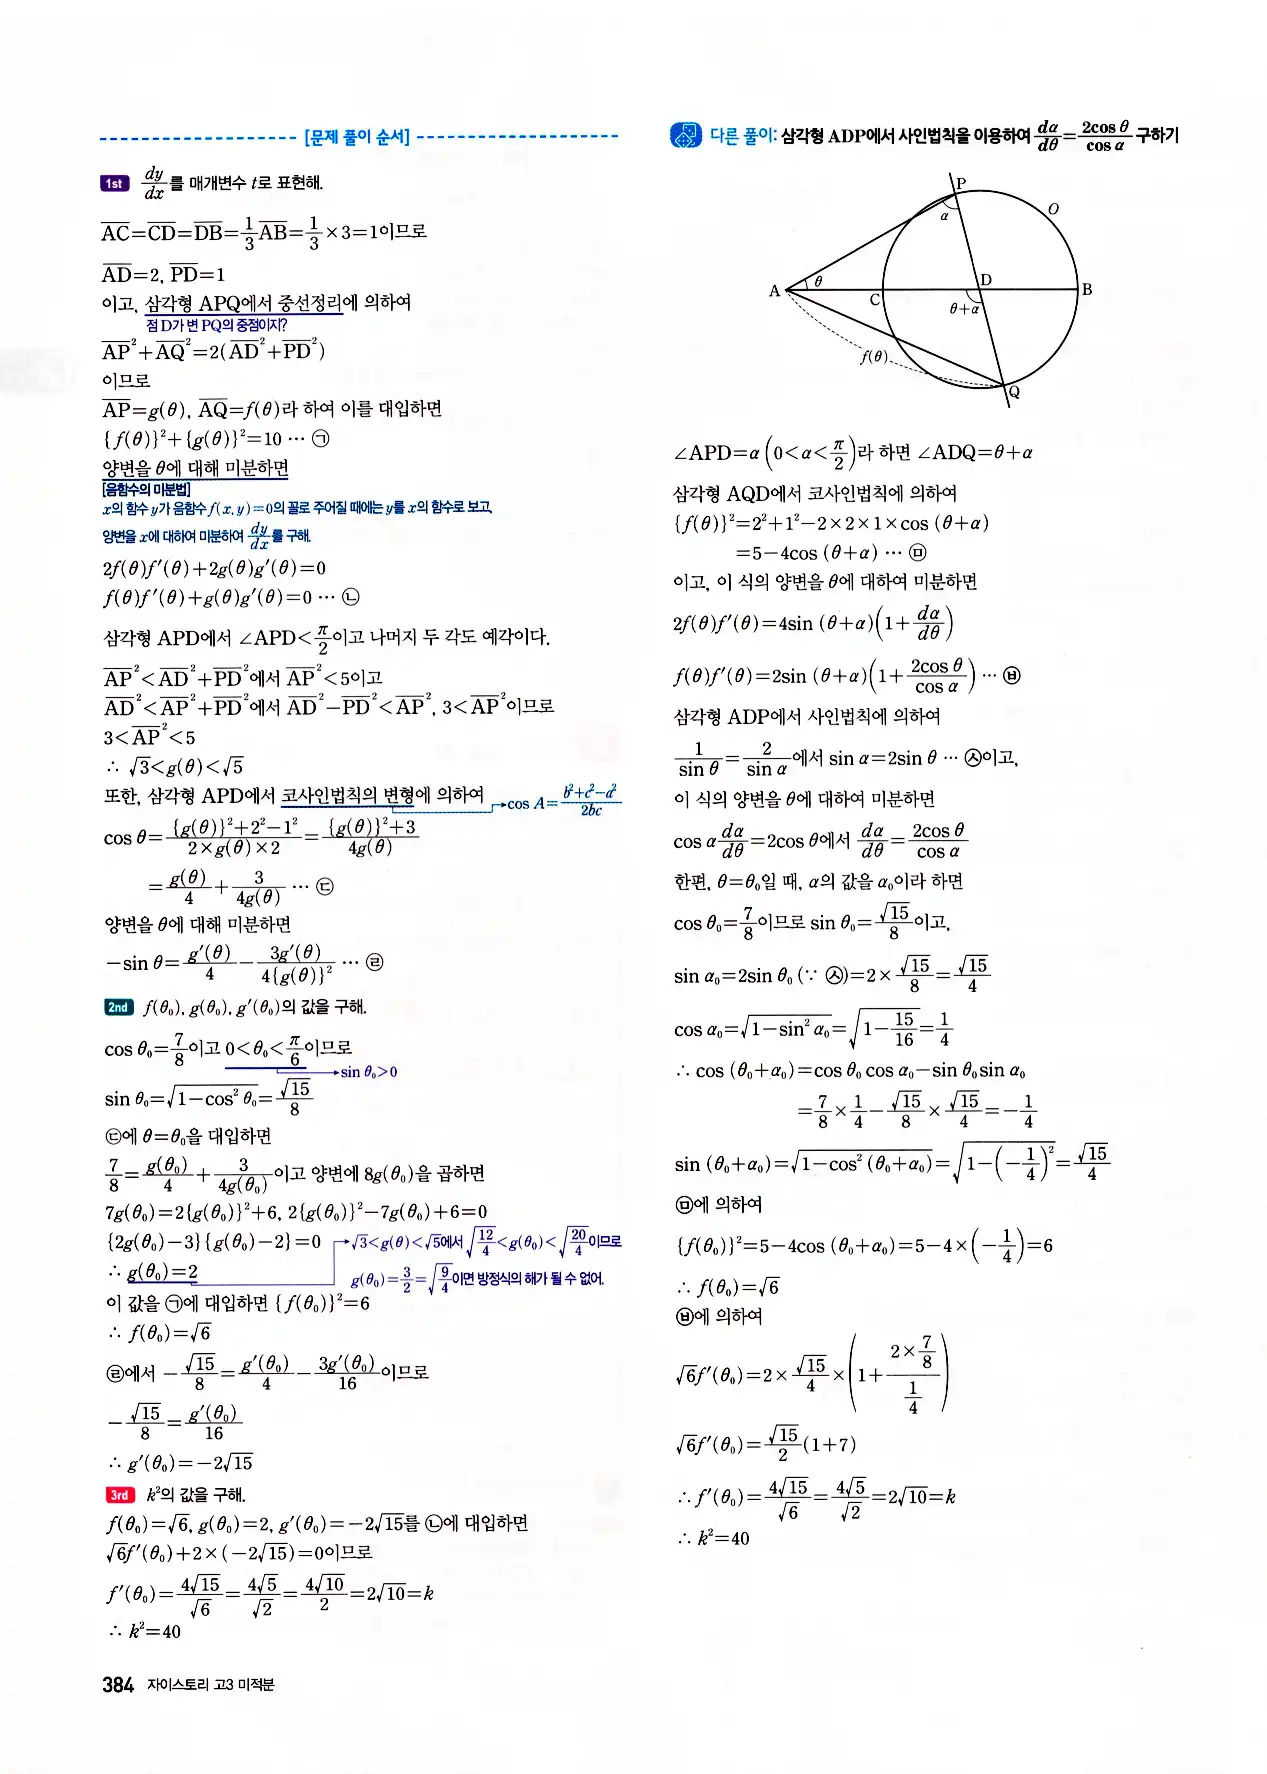 [문제 풀이 순서]
1st dy/dx를 매개변수 t로 표현해.
AC=CD=DB=1/3AB=1/3×3=1이므로
AD=2, PD=1
이고, 삼각형 APQ에서 중선정리에 의하여
점 D가 변 PQ의 중점이지?
AP²+AQ²=2(AD²+PD²)
이므로
AP=g(θ), AQ=f(θ)라 하여 이를 대입하면
{f(θ)}²+{g(θ)}²=10 ⋯ ㉠
양변을 θ에 대해 미분하면
[음함수의 미분법]
x의 함수 y가 음함수 f(x, y)=0의 꼴로 주어질 때에는 y를 x의 함수로 보고,
양변을 x에 대하여 미분하여 dy/dx를 구해.
2f(θ)f′(θ)+2g(θ)g′(θ)=0
f(θ)f′(θ)+g(θ)g′(θ)=0 ⋯ ㉡
삼각형 APD에서 ∠APD<π/2이고 나머지 두 각도 예각이다.
AP²<AD²+PD²에서 AP²<5이고
AD²<AP²+PD²에서 AD²−PD²<AP², 3<AP²이므로
3<AP²<5
∴ √3<g(θ)<√5
또한, 삼각형 APD에서 코사인법칙의 변형에 의하여 → cos A=(b²+c²−a²)/2bc
cos θ=({g(θ)}²+2²−1²)/(2×g(θ)×2)=({g(θ)}²+3)/4g(θ)
=g(θ)/4+3/4g(θ) ⋯ ㉢
양변을 θ에 대해 미분하면
−sin θ=g′(θ)/4−3g′(θ)/4{g(θ)}² ⋯ ㉣
2nd f(θ₀), g(θ₀), g′(θ₀)의 값을 구해.
cos θ₀=7/8이고 0<θ₀<π/6이므로
→ sin θ₀>0
sin θ₀=√(1−cos² θ₀)=√15/8
㉢에 θ=θ₀을 대입하면
7/8=g(θ₀)/4+3/4g(θ₀)이고 양변에 8g(θ₀)을 곱하면
7g(θ₀)=2{g(θ₀)}²+6, 2{g(θ₀)}²−7g(θ₀)+6=0
{2g(θ₀)−3}{g(θ₀)−2}=0 → √3<g(θ)<√5에서 √(12/4)<g(θ₀)<√(20/4)이므로
∴ g(θ₀)=2 g(θ₀)=3/2=√(9/4)이면 방정식의 해가 될 수 없어.
이 값을 ㉠에 대입하면 {f(θ₀)}²=6
∴ f(θ₀)=√6
㉣에서 −√15/8=g′(θ₀)/4−3g′(θ₀)/16이므로
−√15/8=g′(θ₀)/16
∴ g′(θ₀)=−2√15
3rd k²의 값을 구해.
f(θ₀)=√6, g(θ₀)=2, g′(θ₀)=−2√15를 ㉡에 대입하면
√6f′(θ₀)+2×(−2√15)=0이므로
f′(θ₀)=4√15/√6=4√5/√2=4√10/2=2√10=k
∴ k²=40
384 자이스토리 고3 미적분
다른 풀이: 삼각형 ADP에서 사인법칙을 이용하여 dα/dθ=2cos θ/cos α 구하기
P
α
O
θ
A
C
D
B
θ+α
f(θ)
Q
∠APD=α (0<α<π/2)라 하면 ∠ADQ=θ+α
삼각형 AQD에서 코사인법칙에 의하여
{f(θ)}²=2²+1²−2×2×1×cos (θ+α)
=5−4cos (θ+α) ⋯ ㉤
이고, 이 식의 양변을 θ에 대하여 미분하면
2f(θ)f′(θ)=4sin (θ+α)(1+dα/dθ)
f(θ)f′(θ)=2sin (θ+α)(1+2cos θ/cos α) ⋯ ㉥
삼각형 ADP에서 사인법칙에 의하여
1/sin θ=2/sin α에서 sin α=2sin θ ⋯ ㉦이고,
이 식의 양변을 θ에 대하여 미분하면
cos α dα/dθ=2cos θ에서 dα/dθ=2cos θ/cos α
한편, θ=θ₀일 때, α의 값을 α₀이라 하면
cos θ₀=7/8이므로 sin θ₀=√15/8이고,
sin α₀=2sin θ₀ (∵ ㉦)=2×√15/8=√15/4
cos α₀=√(1−sin² α₀)=√(1−15/16)=1/4
∴ cos (θ₀+α₀)=cos θ₀ cos α₀−sin θ₀ sin α₀
=7/8×1/4−√15/8×√15/4=−1/4
sin (θ₀+α₀)=√(1−cos² (θ₀+α₀))=√(1−(−1/4)²)=√15/4
㉤에 의하여
{f(θ₀)}²=5−4cos (θ₀+α₀)=5−4×(−1/4)=6
∴ f(θ₀)=√6
㉥에 의하여
√6f′(θ₀)=2×√15/4×(1+(2×7/8)/(1/4))
√6f′(θ₀)=√15/2(1+7)
∴ f′(θ₀)=4√15/√6=4√5/√2=2√10=k
∴ k²=40